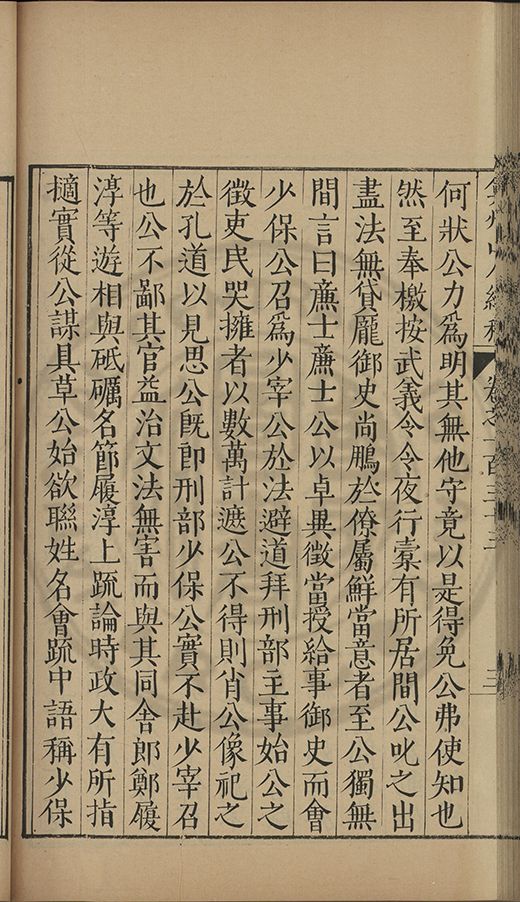 弇州山人續稿 卷之一百三十三 三
何狀公力爲明其無他守竟以是得免公弗使知也
然至奉檄按武義令令夜行橐有所居間公叱之出
盡法無貸龐御史尚鵬於僚屬鮮當意者至公獨無
間言曰亷士亷士公以卓異徵當授給事御史而會
少保公召爲少宰公於法避道拜刑部主事始公之
徵吏民哭擁者以數萬計遮公不得則肖公像祀之
於孔道以見思公旣卽刑部少保公實不赴少宰召
也公不鄙其官益治文法無害而與其同舍郎鄭履
淳等遊相與砥礪名節履淳上疏論時政大有所指
擿實從公謀具草公始欲聮姓名會疏中語稱少保